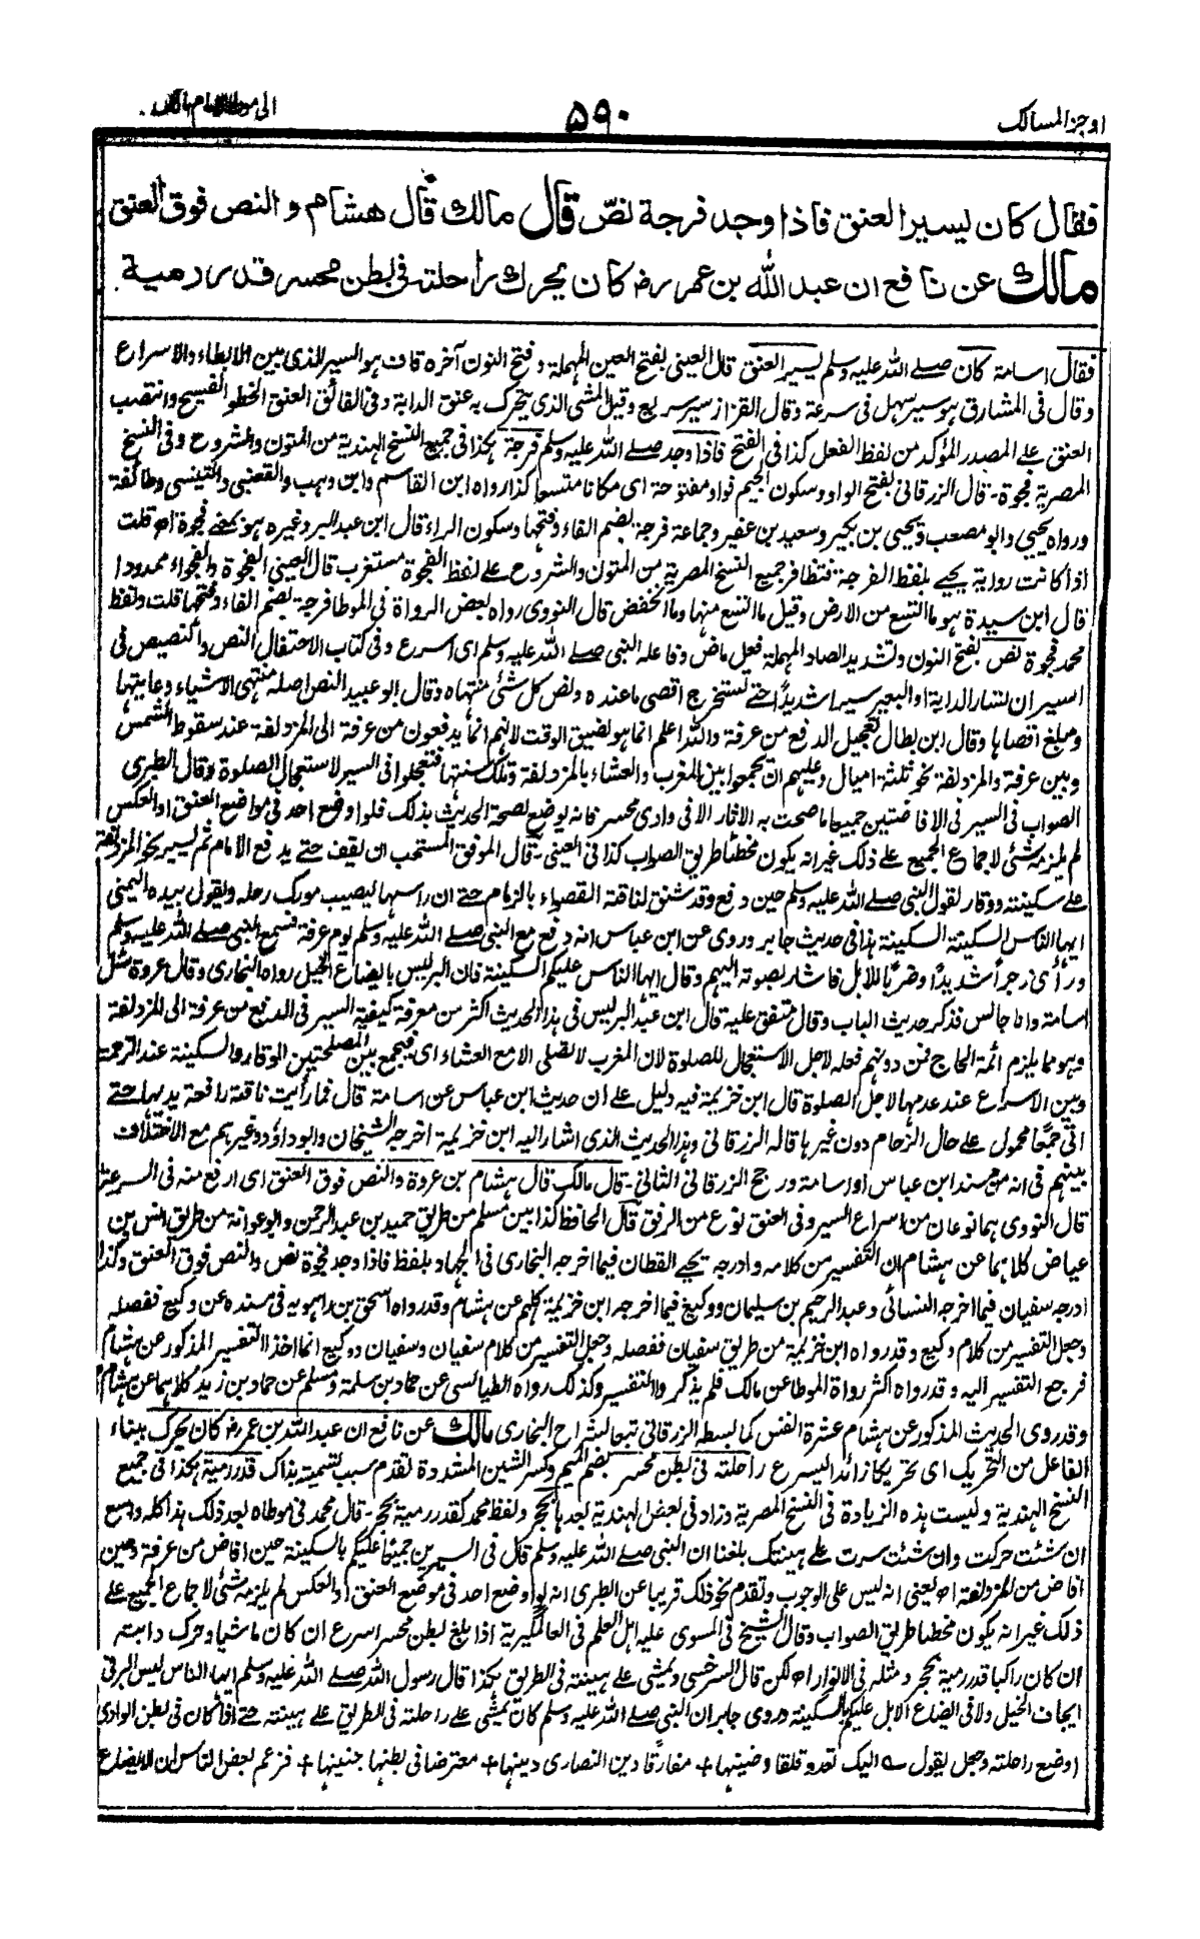 اوجز المسالك
٥٩٠
الى موطأ الامام مالك
فقال كان يسير العنق فاذا وجد فرجة نصّ قال مالك قال هشام والنص فوق العنق
مالك عن نافع ان عبد الله بن عمر رض كان يحرك راحلته فى بطن محسر قدر رمية
فقال اسامة كان صلى الله عليه وسلم يسير العنق قال العينى بفتح العين المهملة وفتح النون آخره قاف هو السير الذى بين الابطاء والاسراع
وقال فى المشارق هو سير سهل فى سرعة وقال القزاز سير سريع وقيل المشى الذى يتحرك به عنق الدابة وفى الفائق العنق الخطو الفسيح وانتصب
العنق على المصدر المؤكد من لفظ الفعل كذا فى الفتح فاذا وجد صلى الله عليه وسلم فرجة هكذا فى جميع النسخ الهندية من المتون والشروح وفى النسخ
المصرية فجوة ـ قال الزرقانى بفتح الواو وسكون الجيم فواو مفتوحة اى مكانا متسعا كذا رواه ابن القاسم وابن وهب والقعنبى والتنيسى وطائفة
ورواه يحيى وابو مصعب ويحيى بن بكير وسعيد بن عفير وجماعة فرجة بضم الفاء وفتحها وسكون الراء قال ابن عبد البر وغيره هو بمعنى فجوة اه قلت
اذا كانت رواية يحيى بلفظ الفرجة فتظافر جميع النسخ المصرية من المتون والشروح على لفظ الفجوة مستغرب قال العينى الفجوة والفجواء ممدودا
قال ابن سيدة هو ما اتسع من الارض وقيل ما اتسع منها وما انخفض قال النووى رواه بعض الرواة فى الموطا فرجة بضم الفاء وفتحها قلت ولفظ
محمد فجوة نص بفتح النون وتشديد الصاد المهملة فعل ماض وفاعله النبى صلى الله عليه وسلم اى اسرع وفى كتاب الاحتفال النص والتنصيص فى
السير ان تسار الدابة او البعير سيرا شديدا حتى تستخرج اقصى ما عنده ونص كل شئ منتهاه وقال ابو عبيد النص اصله منتهى الاشياء وغايتها
ومبلغ اقصاها وقال ابن بطال تعجيل الدفع من عرفة والله اعلم انما هو لضيق الوقت لانهم انما يدفعون من عرفة الى المزدلفة عند سقوط الشمس
وبين عرفة والمزدلفة نحو ثلثة اميال وعليهم ان يجمعوا بين المغرب والعشاء بالمزدلفة وتلك سنتها فتعجلوا فى السير لاستعجال الصلوة وقال الطبرى
الصواب فى السير فى الافاضتين جميعا ما صحت به الاثار الا فى وادى محسر فانه يوضع لصحة الحديث بذلك فلو اوضع احد فى مواضع العنق او العكس
لم يلزمه شئ لاجماع الجميع على ذلك غير انه يكون مخطئا طريق الصواب كذا فى العينى ـ قال الموفق المستحب ان يقف حتى يدفع الامام ثم يسير نحو المزدلفة
على سكينته ووقار لقول النبى صلى الله عليه وسلم حين دفع وقد شنق لناقته القصواء بالزمام حتى ان راسها ليصيب مورك رحله ويقول بيده اليمنى
ايها الناس السكينة السكينة هذا فى حديث جابر وروى عن ابن عباس انه دفع مع النبى صلى الله عليه وسلم يوم عرفة فسمع النبى صلى الله عليه وسلم
وراءى زجرا شديدا وضربا للابل فاشار بصوته اليهم وقال ايها الناس عليكم السكينة فان البر ليس بايضاع الخيل رواه البخارى وقال عروة سئل
اسامة وانا جالس فذكر حديث الباب وقال متفق عليه قال ابن عبد البر ليس فى هذا الحديث اكثر من معرفة كيفية السير فى الدفع من عرفة الى المزدلفة
وهو مما يلزم ائمة الحاج فمن دونهم فعله لاجل الاستعجال للصلوة لان المغرب لا تصلى الا مع العشاء اى فيجمع بين المصلحتين الوقار والسكينة عند الزحمة
وبين الاسراع عند عدمها لاجل الصلوة قال ابن خزيمة فيه دليل على ان حديث ابن عباس عن اسامة قال فما رأيت ناقته رافعة يديها حتى
اتى جمعا محمول على حال الزحام دون غيرها قاله الزرقانى وهذا الحديث الذى اشار اليه ابن خزيمة اخرجه الشيخان وابو داود وغيرهم مع الاختلاف
بينهم فى انه من مسند ابن عباس او اسامة ورجح الزرقانى الثانى ـ قال مالك قال هشام بن عروة والنص فوق العنق اى ارفع منه فى السرعة
قال النووى هما نوعان من اسراع السير وفى العنق نوع من الرفق قال الحافظ كذا بين مسلم من طريق حميد بن عبد الرحمن وابو عوانة من طريق انس بن
عياض كلاهما عن هشام ان التفسير من كلامه وادرجه يحيى القطان فيما اخرجه البخارى فى الجهاد بلفظ فاذا وجد فجوة نص والنص فوق العنق وكذا
ادرجه سفيان فيما اخرجه النسائى وعبد الرحيم بن سليمان ووكيع فيما اخرجه ابن خزيمة كلهم عن هشام وقد رواه اسحق بن راهويه فى مسنده عن وكيع ففصله
وجعل التفسير من كلام وكيع وقد رواه ابن خزيمة من طريق سفيان ففصله وجعل التفسير من كلام سفيان وسفيان ووكيع انما اخذا التفسير المذكور عن هشام
فرجع التفسير اليه وقد رواه اكثر رواة الموطا عن مالك فلم يذكروا التفسير وكذلك رواه الطيالسى عن حماد بن سلمة ومسلم عن حماد بن زيد كلاهما عن هشام
وقد روى الحديث المذكور عن هشام عشرة انفس كما بسطه الزرقانى تبعا لشراح البخارى مالك عن نافع ان عبد الله بن عمر رض كان يحرك ببناء
الفاعل من التحريك اى تحريكا زائدا ليسرع راحلته فى بطن محسر بضم الميم وكسر الشين المشددة تقدم سبب تسميته بذاك قدر رمية هكذا فى جميع
النسخ الهندية وليست هذه الزيادة فى النسخ المصرية وزاد فى بعض الهندية بعدها بحجر ولفظ محمد كقدر رمية بحجر ـ قال محمد فى موطاه بعد ذلك هذا كله واسع
ان شئت حركت وان شئت سرت على هينتك بلغنا ان النبى صلى الله عليه وسلم قال فى السيرين جميعا عليكم بالسكينة حين افاض من عرفة وحين
افاض من المزدلفة اه يعنى انه ليس على الوجوب وتقدم نحو ذلك قريبا عن الطبرى انه لو اوضع احد فى موضع العنق او العكس لم يلزمه شئ لاجماع الجميع على
ذلك غير انه يكون مخطئا طريق الصواب وقال الشيخ فى المسوى عليه اهل العلم فى العالمگيرية اذا بلغ بطن محسر اسرع ان كان ماشيا وحرك دابته
ان كان راكبا قدر رمية بحجر ومثله فى الانوار اه لكن قال السرخسى ويمشى على هينته فى الطريق هكذا قال رسول الله صلى الله عليه وسلم ايها الناس ليس البر فى
ايجاف الخيل ولا فى ايضاع الابل عليكم بالسكينة وروى جابر ان النبى صلى الله عليه وسلم كان يمشى على راحلته فى الطريق على هينته حتى اذا كان فى بطن الوادى
اوضع راحلته وجعل يقول ؎ اليك تعدو قلقا وضينها + مفارقا دين النصارى دينها + معترضا فى بطنها جنينها + فزعم بعض الناس ان الايضاع